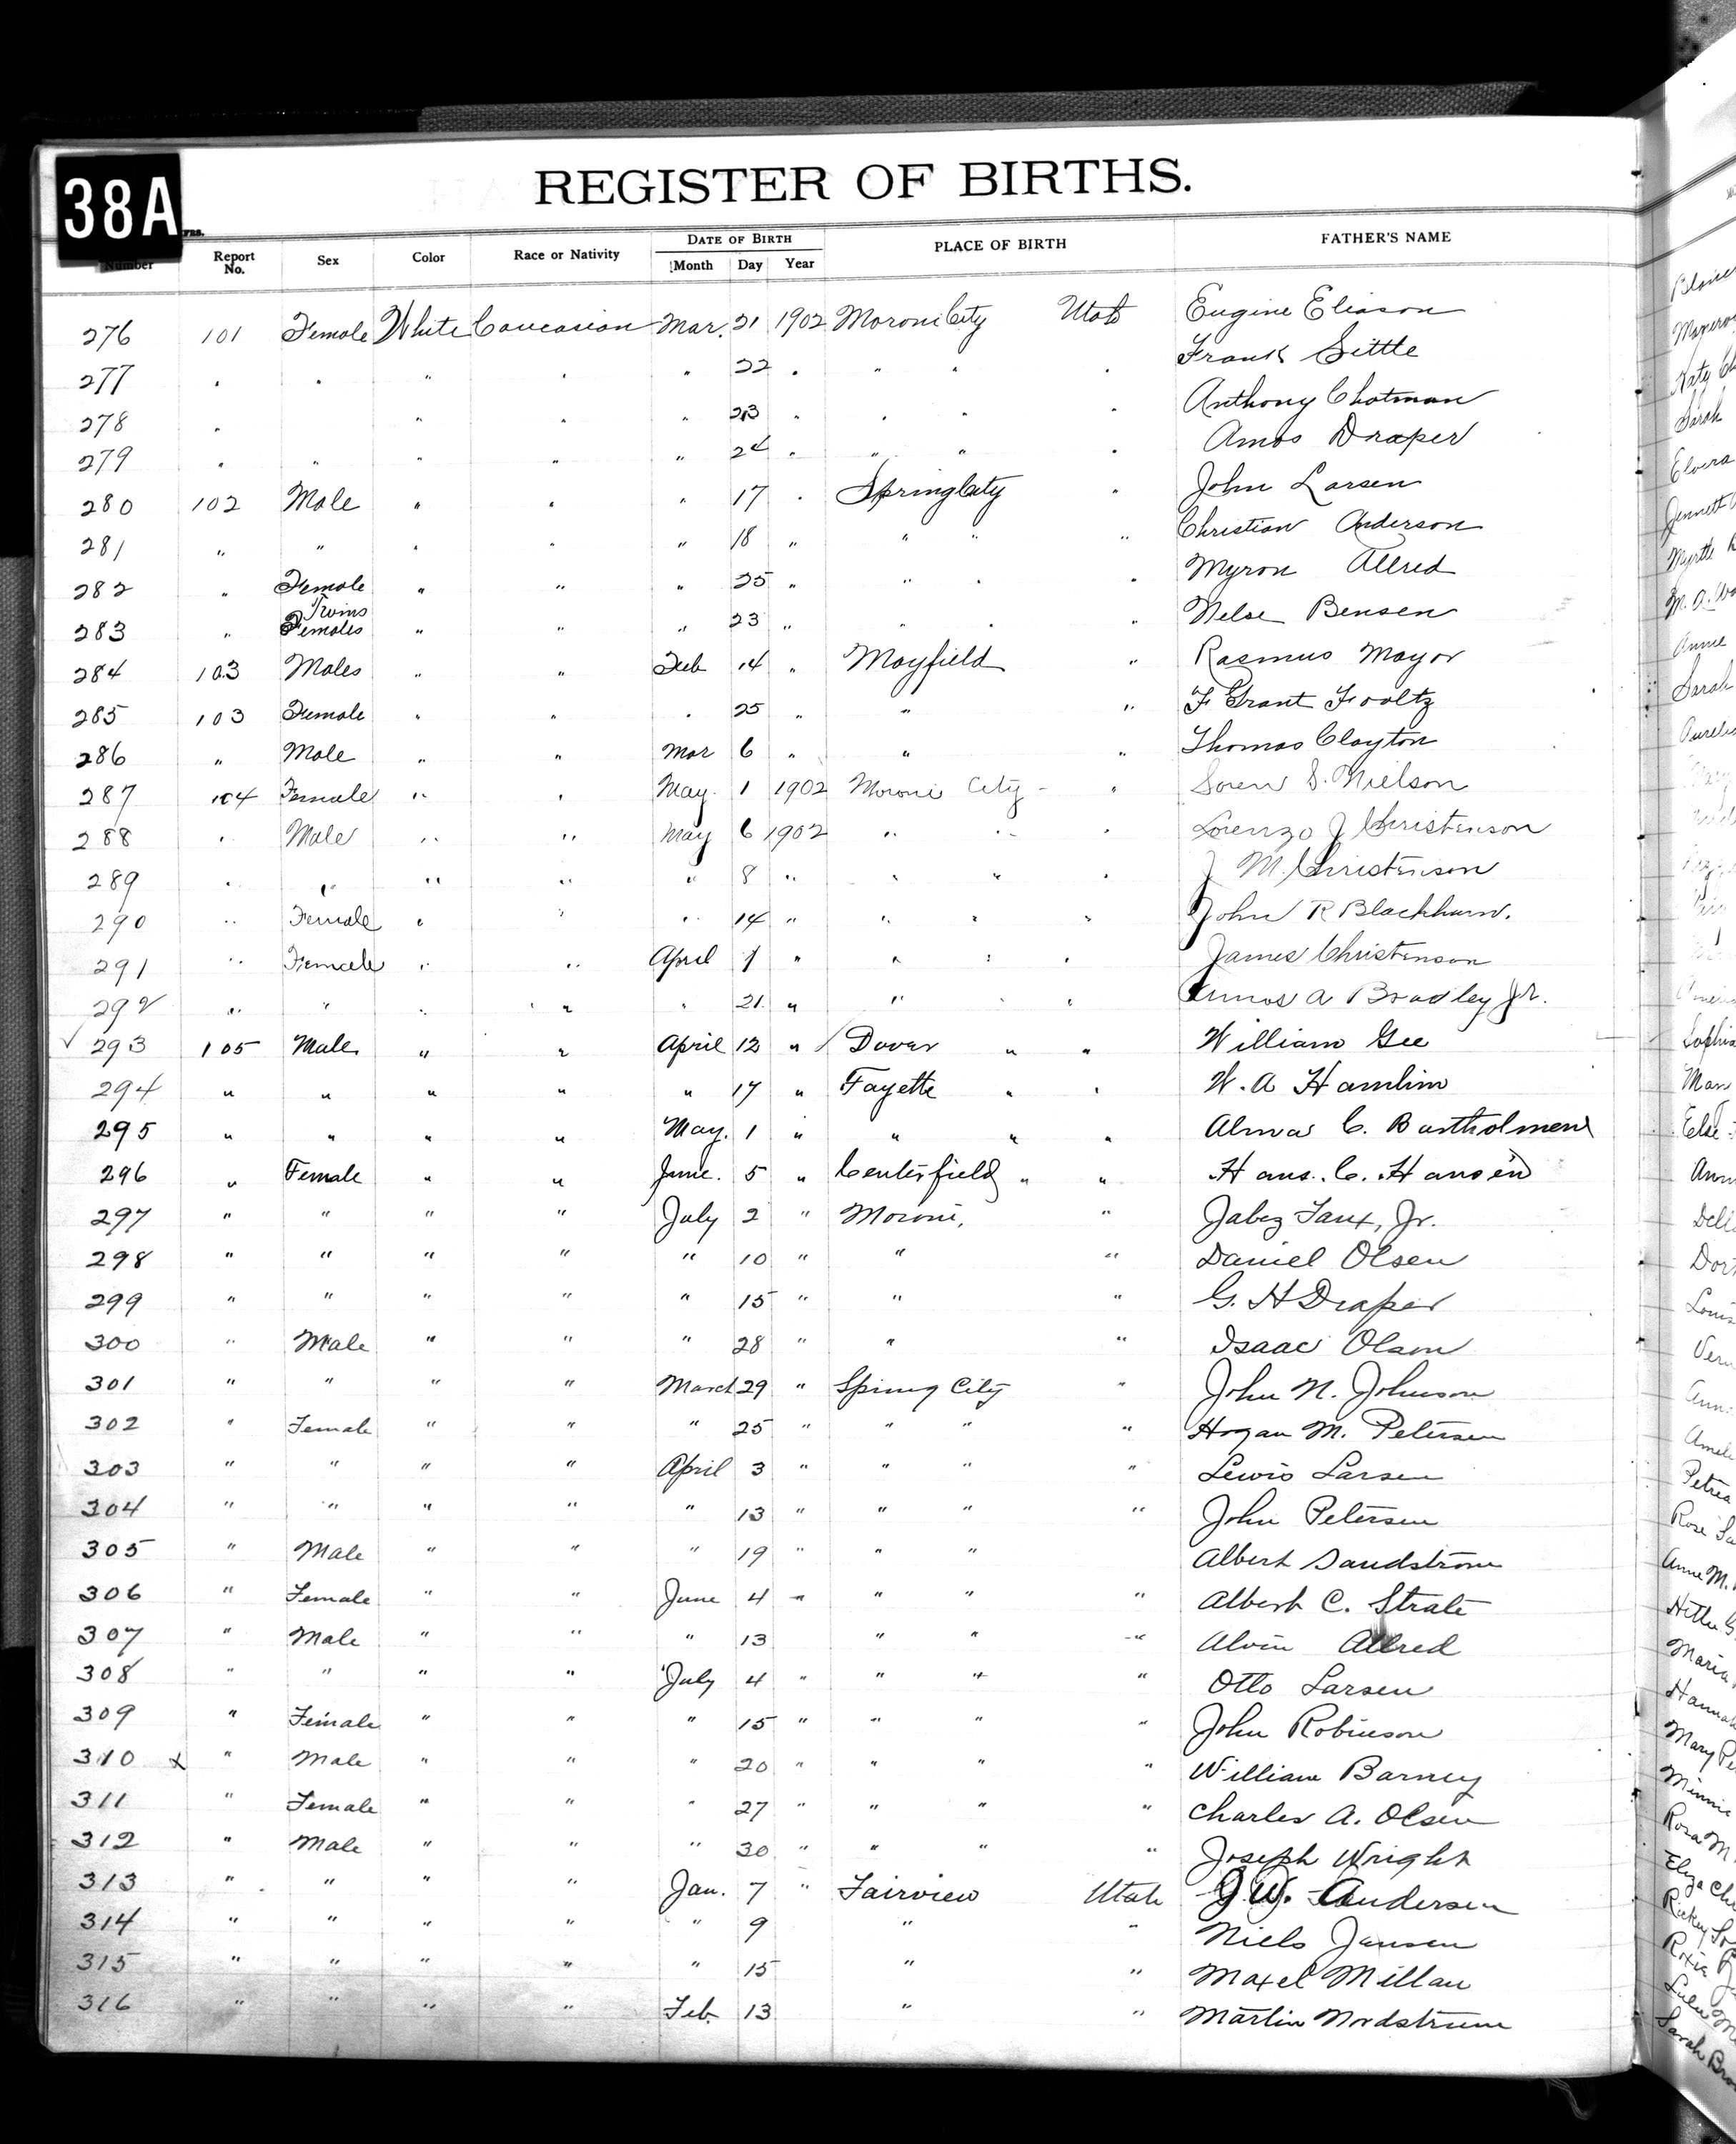 38A
REGISTER OF BIRTHS.
Number Report No. Sex Color Race or Nativity DATE OF BIRTH Month Day Year PLACE OF BIRTH FATHER'S NAME
276 101 Female White Caucasian Mar. 21 1902 Moroni City Utah Eugine Eliason
277 " " " " " 22 " " " " Frank Sittle
278 " " " " 23 " " " " Anthony Chatman
279 " " " " " 24 " " " " Amos Draper
280 102 Male " " " 17 " Spring City " John Larsen
281 " " " " " 18 " " " " Christian Anderson
282 " Female " " " 25 " " " " Myron Allred
283 " Twins Females " " " 23 " " " " Nelse Bensen
284 103 Males " " Feb 14 " Mayfield " Rasmus Mayor
285 103 Female " " " 25 " " " F Grant Fooltz
286 " Male " " Mar 6 " " " Thomas Clayton
287 104 Female " " May. 1 1902 Moroni City " Soren S. Nielson
288 " Male " " May 6 1902 " " " Lorenzo J Christenson
289 " " " " " 8 " " " " J M. Christenson
290 " Female " " " 14 " " " " John R Blackhurn.
291 " Female " " April 1 " " " " James Christenson
292 " " " " " 21. " " " " Amos A Bradley Jr.
293 105 Male " " April 12 " Dover " " William Gee
294 " " " " " 17 " Fayette " " W. A Hamlin
295 " " " " May. 1 " " " " Alma C. Bartholmew
296 " Female " " June. 5 " Centerfield " " Hans. C. Hansen
297 " " " " July 2 " Moroni, " Jabez Faux, Jr.
298 " " " " " 10 " " " Daniel Olsen
299 " " " " " 15 " " " G. H Draper
300 " Male " " " 28 " " " Isaac Olson
301 " " " " March 29 " Spring City " John N. Johnson
302 " Female " " " 25 " " " " Hogan M. Petersen
303 " " " " April 3 " " " " Lewis Larsen
304 " " " " " 13 " " " " John Petersen
305 " Male " " " 19 " " " Albert Sandstrom
306 " Female " " June 4 " " " " Albert C. Strate
307 " Male " " " 13 " " " Alvin Allred
308 " " " " July 4 " " " " Otto Larsen
309 " Female " " " 15 " " " " John Robinson
310 x " Male " " " 20 " " " " William Barney
311 " Female " " " 27 " " " " Charles A. Olsen
312 " Male " " " 30 " " " " Joseph Wright
313 " " " " Jan. 7 " Fairview Utah J. W. Andersen
314 " " " " " 9 " " Niels Jansen
315 " " " " " 15 " " Maxel Millan
316 " " " " Feb. 13 " " Martin Nordstrum